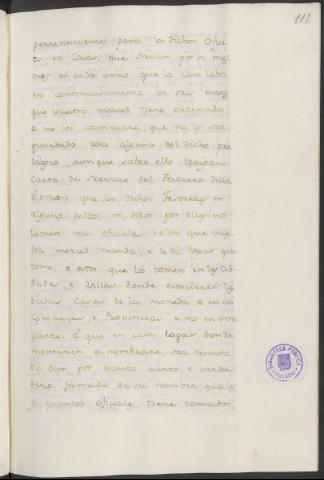 112
pertenecientes para los dichos Ofici
os ni Casas, que sirvan por si mes
mos en cada anno que la Casa labra
re continuadamente los seis meses
que vuestra merced tiene ordenado
e no los continuare que no le sea
guardada cosa alguna del dicho pre
vilegio, aunque sobre ello
carta de servicio del Tesorero della
E otrosi que los dichos Tesoreros ni
alguno dellos, ni otros por ellos no
tomen mas oficiales de los que vues
tra merced manda, e le da logar que
tome, e estos que los tomen en las Cib
dades, e Villas donde estovieren las
dichas Casas de la moneda e en sus
comarcas e Provincias, e no en otra
parte. E que en cada logar donde
montaren o nombrare, sea tenudo
de dar por escrito cierto e verda
dero firmado de su nombre quales
e quantos oficiales tiene tomados,
BIBLIOTECA PUBLICA